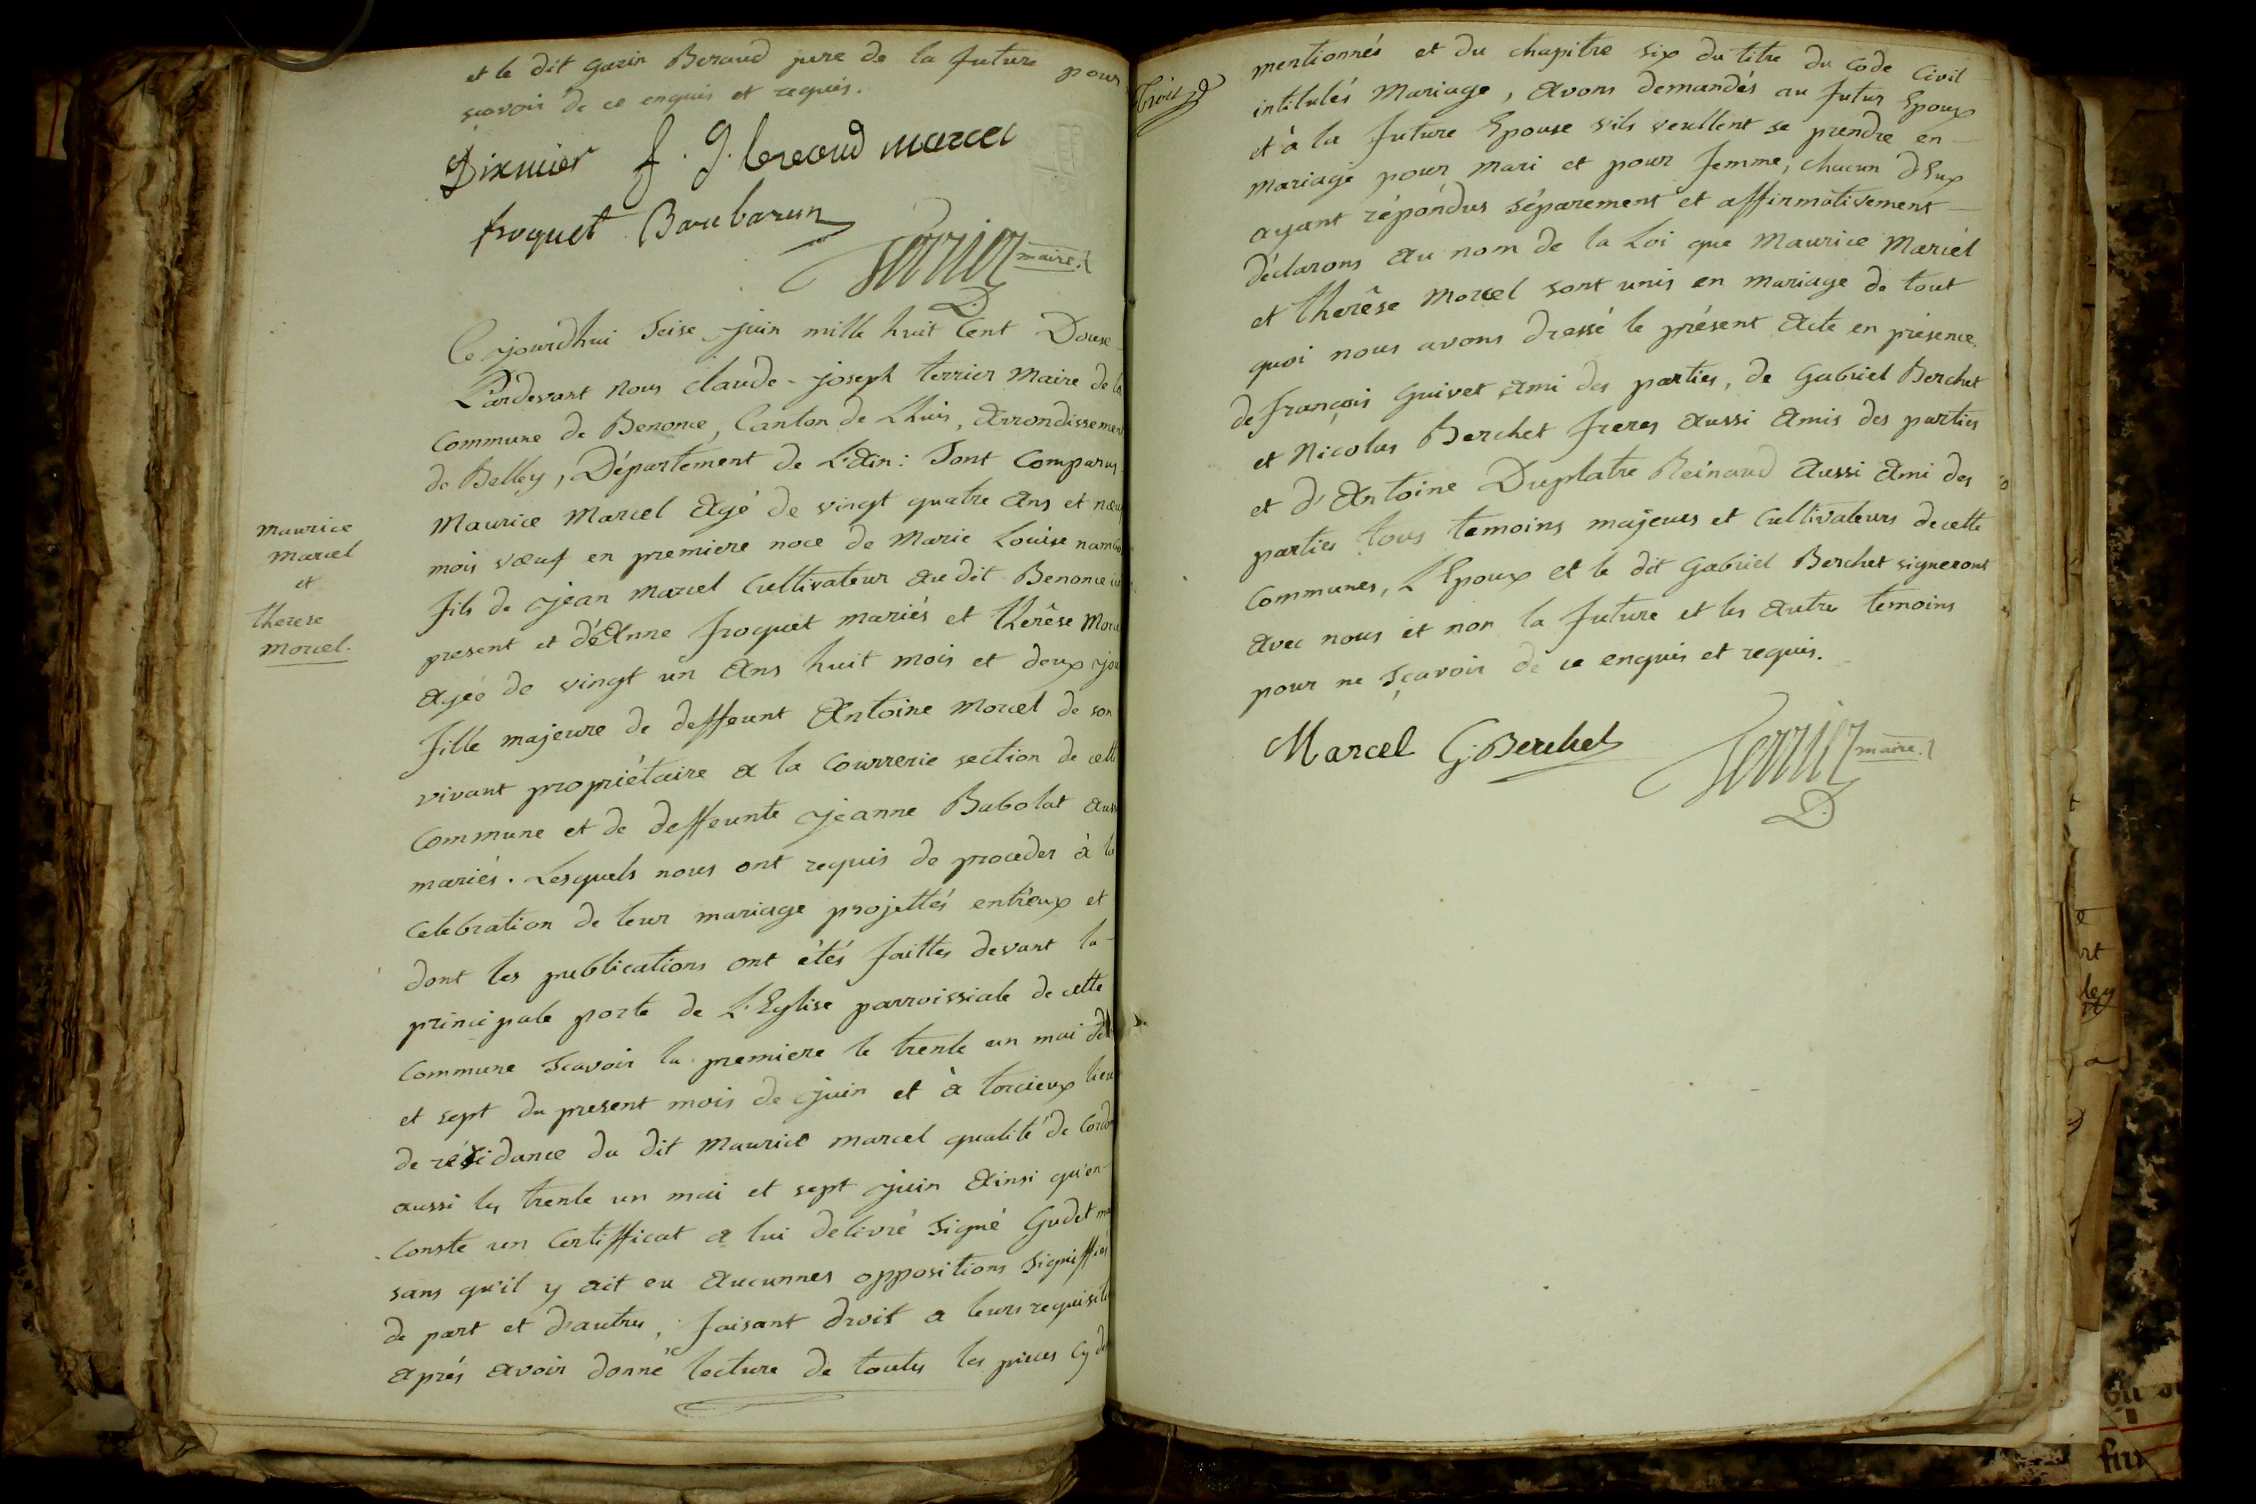 et le dit garin Beraud pere de la future pour
sçavoir de ce enquis et requis.
Dixmier f. J. beraud marcel
froquet Barbarin
Terrier maire
Cejourdhui Seise juin mille huit Cent Douse
Pardevant nous claude-joseph terrier Maire de la
Commune de Benonce, Canton de Lhuis, Arrondissement
de Belley, Département de L'Ain: Sont Comparus
Maurice Marcel Agé de vingt quatre Ans et neuf
mois vœuf en premiere noce de Marie Louise
fils de jean Marcel Cultivateur Au dit Benonce ici
present et dé Anne froquet mariés et Therêse Morcel
Agée de vingt un Ans huit mois et deux jou
fille majeure de deffeunt Antoine Morcel de son
vivant propriétaire a la Courrerie section de cette
Commune et de deffeunte jeanne Babolat aussi
mariés. Lesquels nous ont requis de proceder à la
Celebration de leur mariage projettés entr'eux et
dont les publications ont êtés faittes devant la
principale porte de L'Eglise parroissiale de cette
Commune Scavoir la premiere le trente un mai
et sept du present mois de juin et à torcieux lieu
de résidance du dit Maurice marcel qualité de
aussi les trente un mai et sept juin Ainsi qu'en
Conste un Certifficat a lui delivré Signé Gudet
sans qu'il y ait eu Aucunnes oppositions Signiffiés
de part et d'autres, faisant droit a leurs requisit
Aprés Avoir donné lecture de toutes les pieces Cy de
maurice
marcel
et
therese
morcel.
Trois
mentionnés et du chapitre six du titre du Code Civil
intitulés Mariage, Avons demandés au futur Epoux
et à la future Epouse s'ils veullent se prendre en
mariage pour mari et pour femme, chacun d'Eux
ayant répondus séparement et affirmativement
déclarons Au nom de la Loi que Maurice Marcel
et Therêse Morcel sont unis en mariage de tout
quoi nous avons dressé le présent Acte en présence
de françois Guivet Ami des parties, de Gabriel Berchet
et Nicolas Berchet freres Aussi Amis des parties
et d'Antoine Duplatre Reinaud Aussi Ami des
parties tous temoins majeurs et Cultivateurs de cette
Communes, L'Epoux et le dit Gabriel Berchet signeront
Avec nous et non la future et les Autres temoins
pour ne Sçavoir de ce enquis et requis.
Marcel G. Berchet Terrier maire